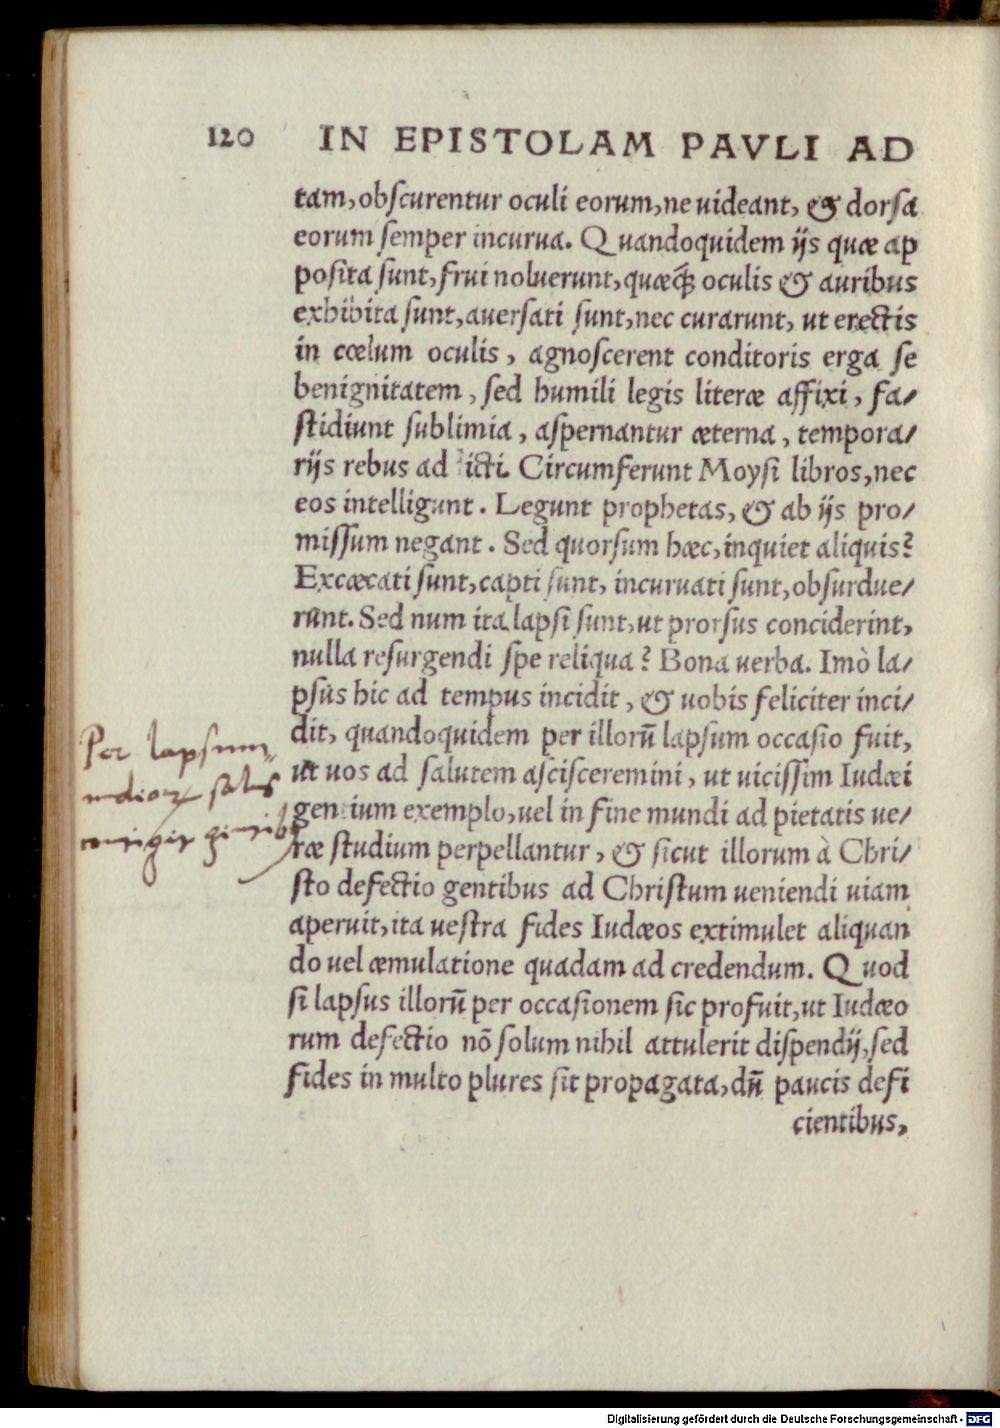 120 IN EPISTOLAM PAVLI AD
tam, obſcurentur oculi eorum, ne uideant, & dorſa
eorum ſemper incurua. Quandoquidem ijs quæ ap
poſita ſunt, frui noluerunt, quæq́; oculis & auribus
exhibita ſunt, auerſati ſunt, nec curarunt, ut erectis
in cœlum oculis, agnoſcerent conditoris erga ſe
benignitatem, ſed humili legis literæ affixi, fa/
ſtidiunt ſublimia, aſpernantur æterna, tempora/
rijs rebus ad icti. Circumferunt Moyſi libros, nec
eos intelligunt. Legunt prophetas, & ab ijs pro/
miſſum negant. Sed quorſum hæc, inquiet aliquis?
Excæcati ſunt, capti ſunt, incuruati ſunt, obſurdue/
runt. Sed num ita lapſi ſunt, ut prorſus conciderint,
nulla reſurgendi ſpe reliqua? Bona uerba. Imò la/
pſus hic ad tempus incidit, & uobis feliciter inci/
dit, quandoquidem per illorũ lapſum occaſio fuit,
ut uos ad ſalutem aſciſceremini, ut uiciſſim Iudæi
gentium exemplo, uel in fine mundi ad pietatis ue/
ræ ſtudium perpellantur, & ſicut illorum à Chri/
ſto defectio gentibus ad Chriſtum ueniendi uiam
aperuit, ita ueſtra fides Iudæos extimulet aliquan
do uel æmulatione quadam ad credendum. Quod
ſi lapſus illorũ per occaſionem ſic profuit, ut Iudæo
rum defectio nõ ſolum nihil attulerit diſpendij, ſed
fides in multo plures ſit propagata, dũ paucis defi
cientibus,
Per lapsum
salus